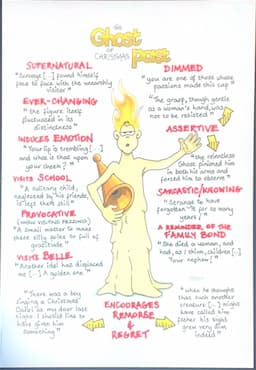 THE
Ghost
OF CHRISTMAS
past
SUPERNATURAL
"Scrooge [..] found himself
face to face with the unearthly
visitor"
EVER-CHANGING
"the figure itself
fluctuated in its
distinctness"
INDUCES EMOTION
"Your lip is trembling [...]
and what is that upon
your cheek?"
VISITS SCHOOL
"A solitary child,
neglected by his friends,
is left there still"
PROVOCATIVE
(WHEN VISITING FEZZIWIG)
"A small matter to make
these silly folks so full of
gratitude"
VISITS BELLE
"Another idol has displaced
me [...] A golden one"
"There was a boy
singing a Christmas
Carol at my door last
night. I should like to
have given him
something"
DIMMED
"you are one of those whose
passions made this cap"
"The grasp, though gentle
as a woman's hand, was
not to be resisted"
ASSERTIVE
"the relentless
Ghost pinioned him
in both his arms and
forced him to observe"
SARCASTIC/KNOWING
"Strange to have
forgotten it for so many
years!"
A REMINDER OF THE
FAMILY BOND
"She died a woman, and
had, as I think, children [...]
Your nephew!"
ENCOURAGES
REMORSE
&
REGRET
"when he thought
that such another
creature [...] might
have called him
father his sight
grew very dim
indeed"